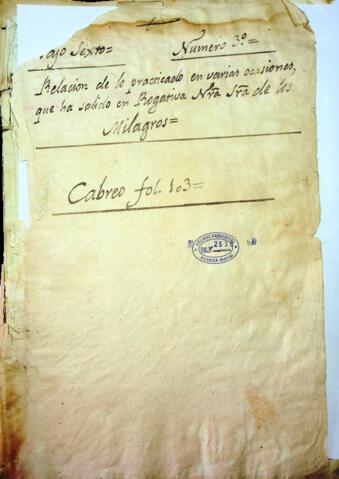 ajo Sexto= Numero 3.º=
Relacion de lo practicado en varias ocasiones,
que ha salido en Rogativa Nrã Srã de los
Milagros=
Cabreo fol. 103=
ARCHIVO PARROQUIAL
AGREDA (SORIA)